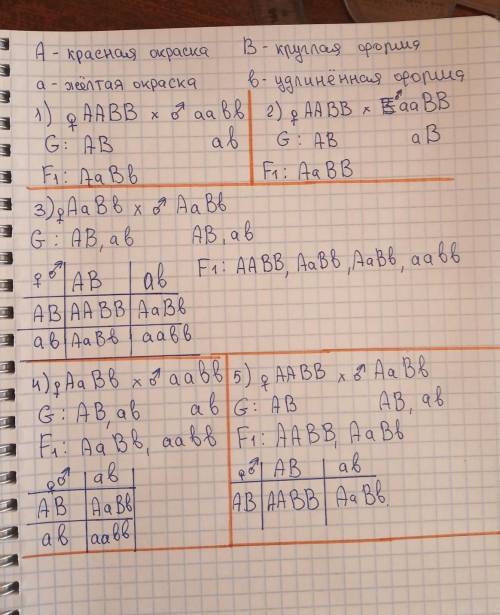 А - красная окраска В - круглая форма
а - жёлтая окраска в - удлинённая форма
1) ♀ААВВ × ♂ аавв
G: АВ ав
F1: АаВв
2) ♀ААВВ × ♂ааВВ
G: АВ аВ
F1: АаВВ
3) ♀АаВв × ♂ АаВв
G: АВ, ав АВ, ав
F1: ААВВ, АаВв, АаВв, аавв
♀♂ АВ ав
АВ ААВВ АаВв
ав АаВв аавв
4) ♀АаВв × ♂ аавв
G: АВ, ав ав
F1: АаВв, аавв
♀♂ ав
АВ АаВв
ав аавв
5) ♀ААВВ × ♂ АаВв
G: АВ АВ, ав
F1: ААВВ, АаВв
♀♂ АВ ав
АВ ААВВ АаВв.